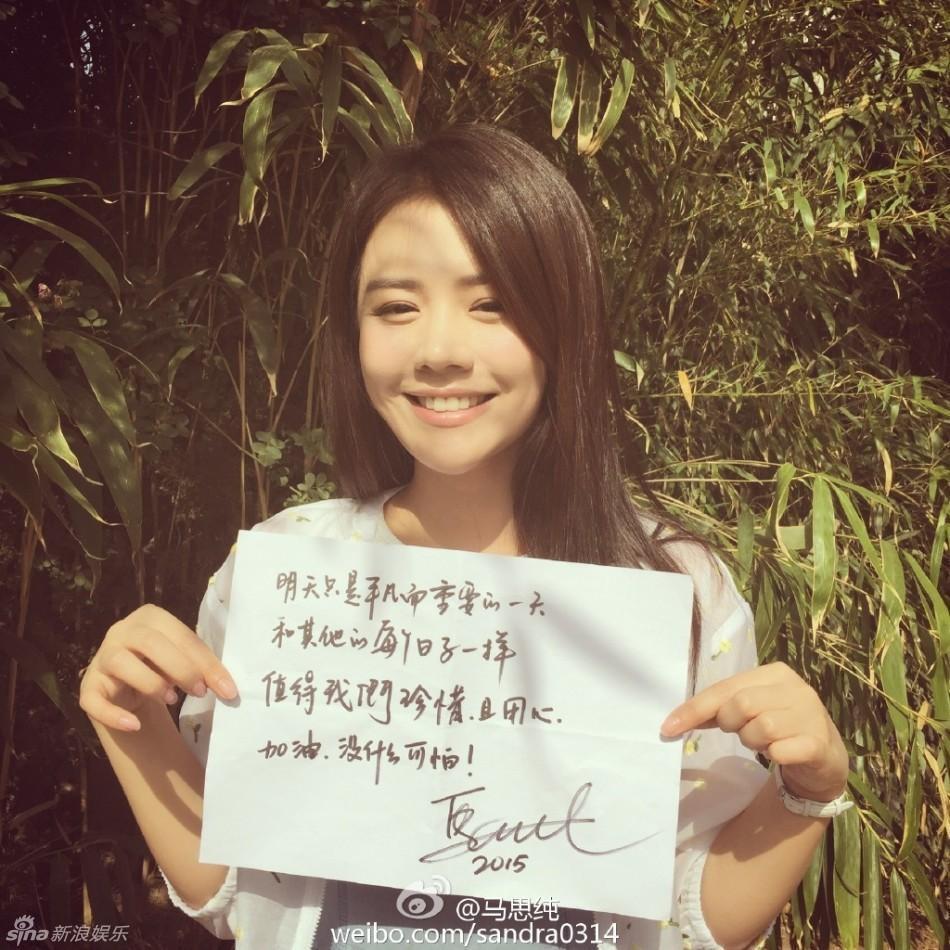 明天只是平凡而重要的一天
和其他的每个日子一样
值得我们珍惜.且用心.
加油.没什么可怕!
2015
@马思纯
weibo.com/sandra0314
sina新浪娱乐